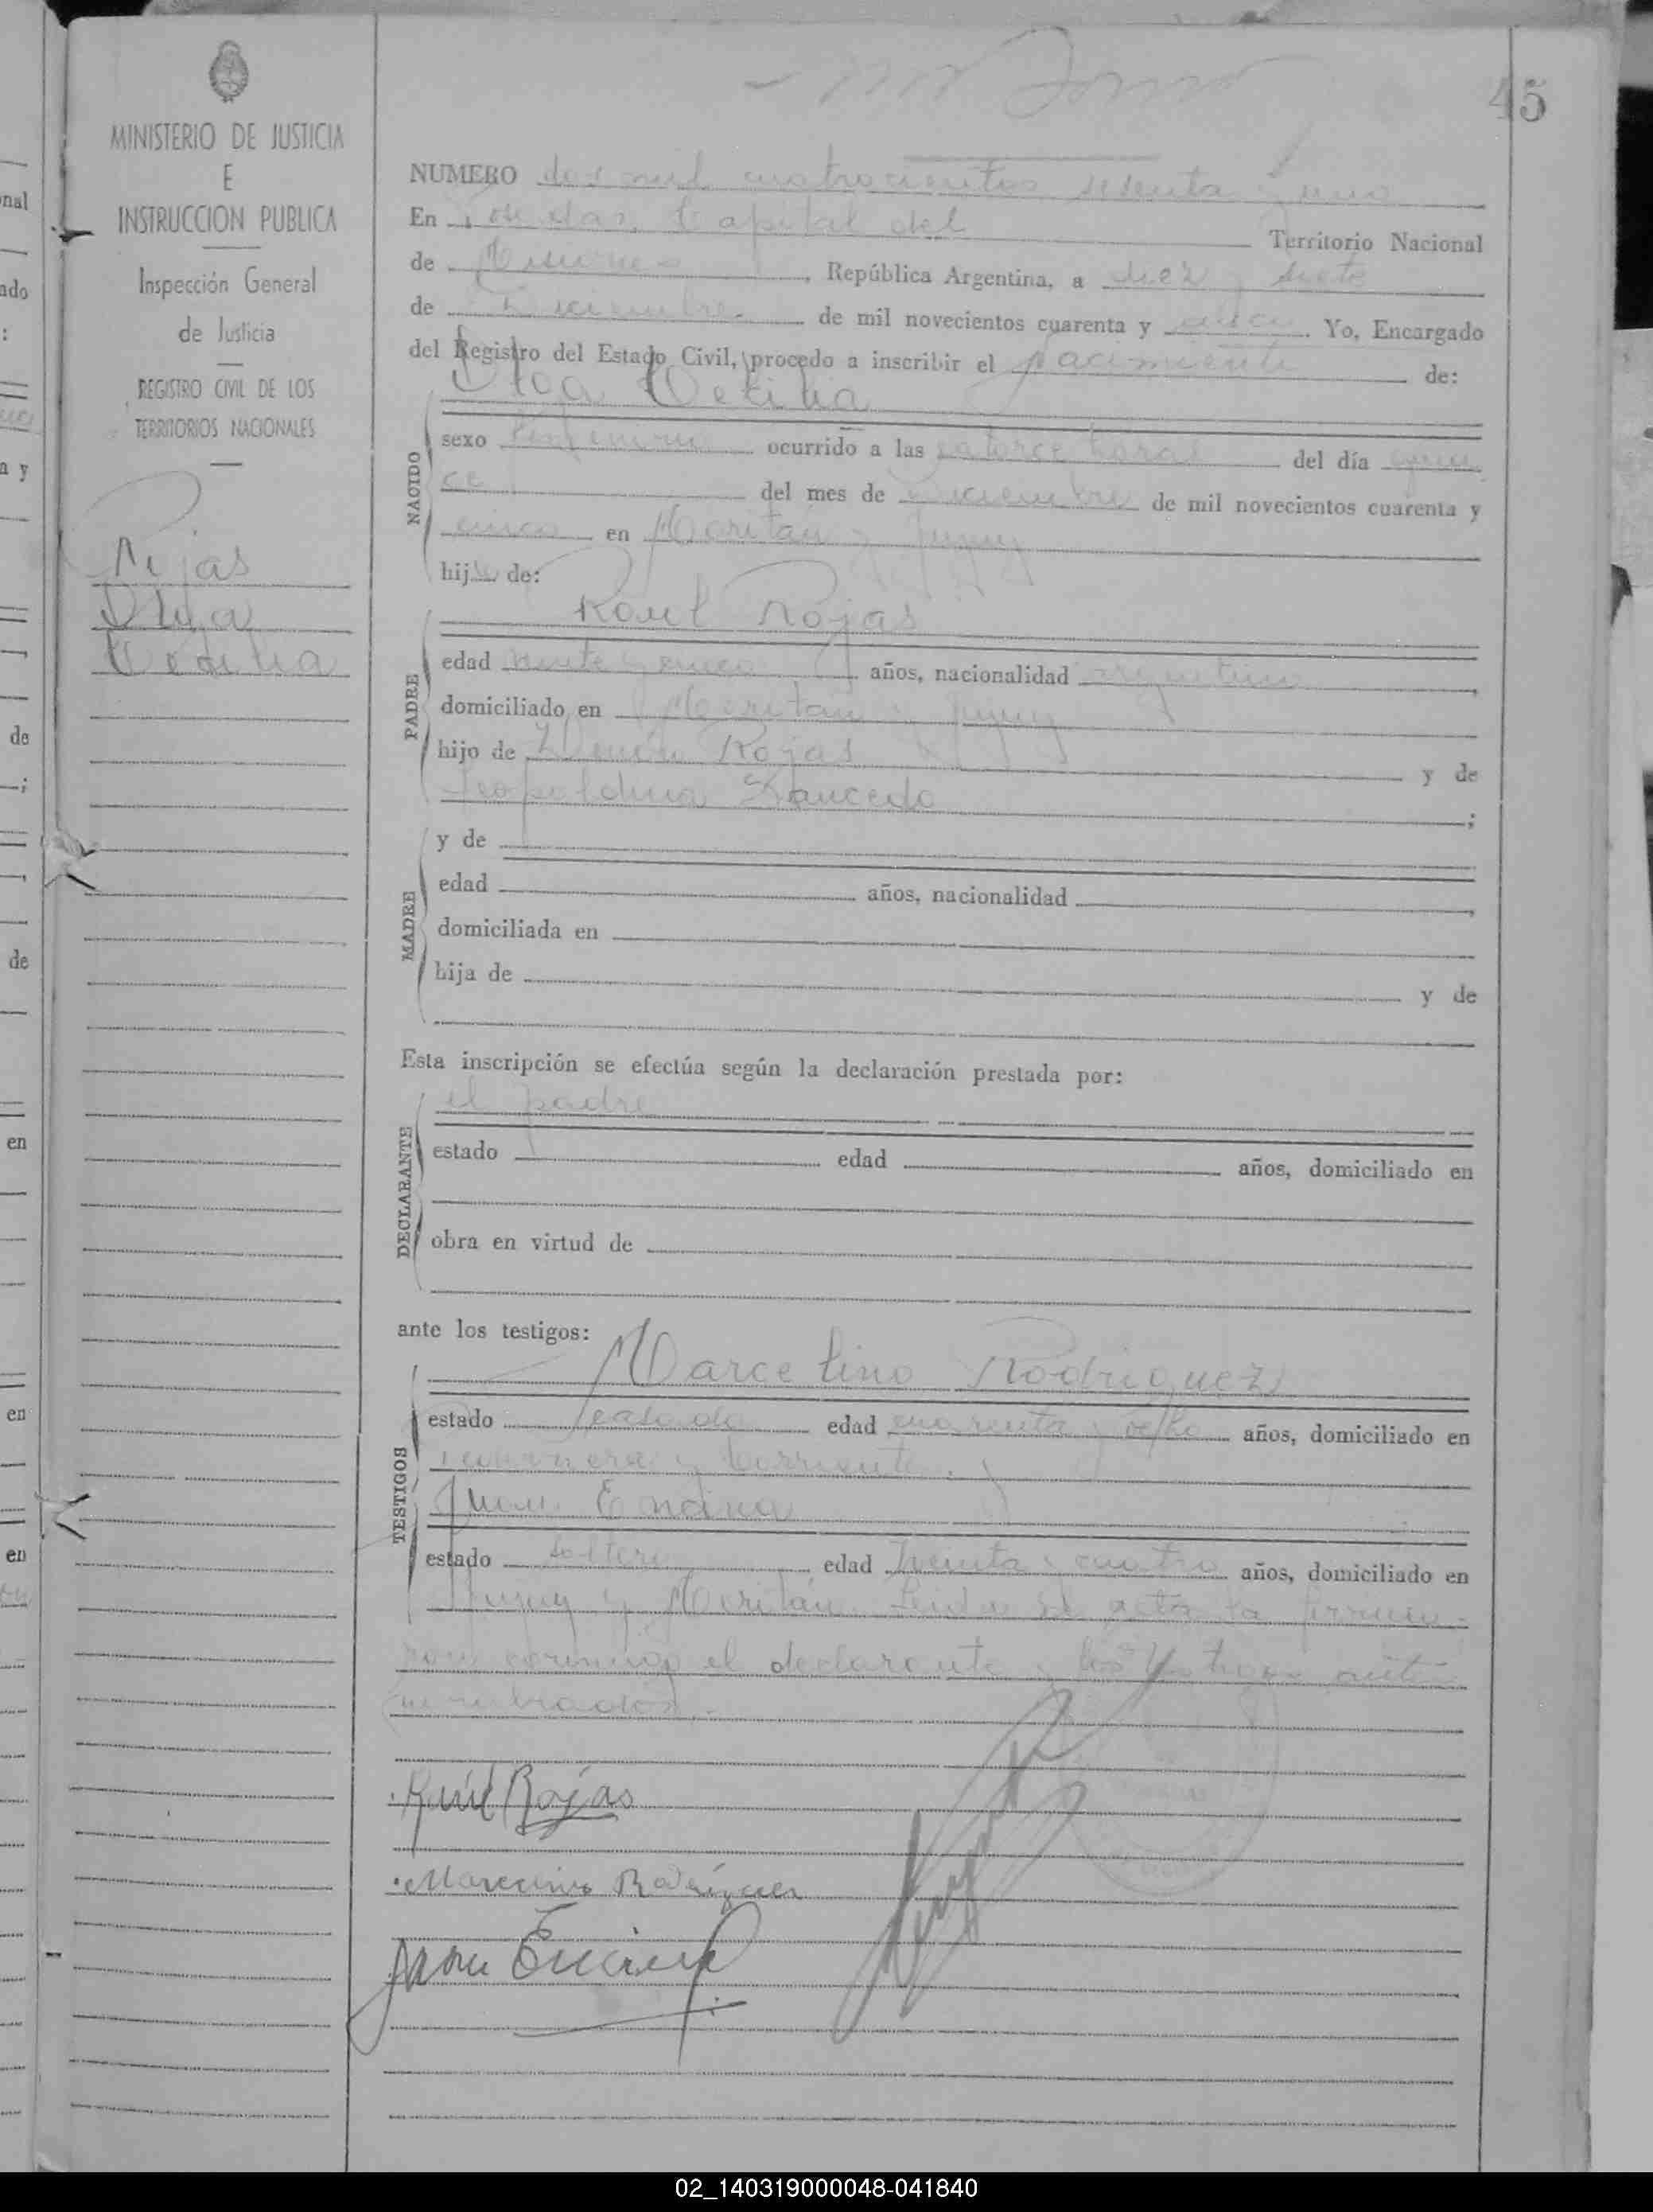 45
MINISTERIO DE JUSTICIA
E
INSTRUCCION PUBLICA
Inspección General
de Justicia
REGISTRO CIVIL DE LOS
TERRITORIOS NACIONALES
Rojas
Olga
NUMERO dos mil cuatrocientos sesenta y uno
En Posadas, Capital del Territorio Nacional
de Misiones, República Argentina, a diez y siete
de Diciembre de mil novecientos cuarenta y cinco. Yo, Encargado
del Registro del Estado Civil, procedo a inscribir el nacimiento de:
Olga
NACIDO
sexo femenino ocurrido a las catorce horas del día quin
ce del mes de Diciembre de mil novecientos cuarenta y
cinco en y Jujuy
hija de:
Raul Rojas
PADRE
edad veinte y cinco años, nacionalidad argentino,
domiciliado en y Jujuy
hijo de Rojas y de
Leopoldina Saucedo;
MADRE
y de
edad años, nacionalidad,
domiciliada en
hija de y de
Esta inscripción se efectúa según la declaración prestada por:
el padre
DECLARANTE
estado edad años, domiciliado en
obra en virtud de
ante los testigos:
Marcelino Rodriguez
TESTIGOS
estado casado edad cuarenta y ocho años, domiciliado en
y Corrientes.
Juan Encina
estado soltero edad treinta y cuatro años, domiciliado en
Jujuy y Leida el acta la firma-
ron conmigo el declarante y los testigos ante
nombrados.-
Raúl Rojas
Marcelino Rodriguez
Juan Encina
nal
ado
:
a y
de
de
en
en
en
02_140319000048-041840